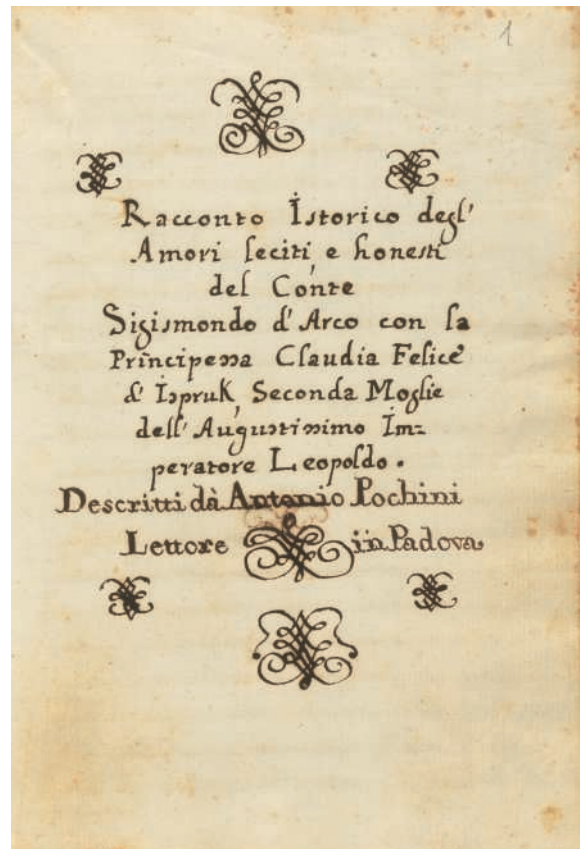 1
Racconto Istorico degl'
Amori leciti e honesti
del Conte
Sigismondo d'Arco con la
Principessa Claudia Felice
d'Ispruk, Seconda Moglie
dell'Augustissimo Im=
peratore Leopoldo.
Descritti dà Antonio Pochini
Lettore in Padova